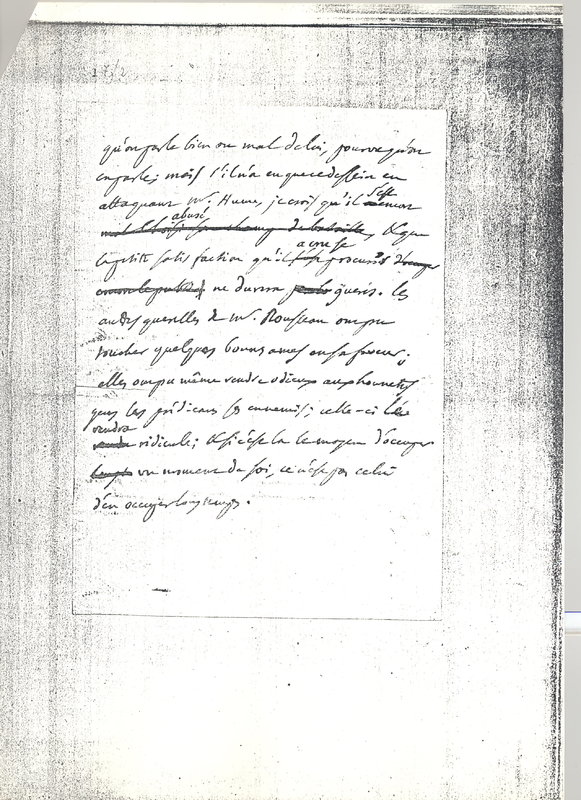 qu'on parle bien ou mal de lui, pourvu qu'on
en parle; mais s'il n'a eu que ce dessein en
attaquant mr. Hume, je crois qu'il s'est
abusé
mal choisi son champ de bataille, & que
a cru se
la petite satisfaction qu'il procurer
encore le public ne durera guères. les
autres querelles de mr. Rousseau ont pu
toucher quelques bonnes ames en sa faveur;
elles ont pu même rendre odieux aux honnêtes
gens les prédicans ses ennemis; celle-ci le
rendra
rendu ridicule; & si c'est là le moyen d'occuper
longt un moment de soi, ce n'est pas celui
d'en occuper longtemps.